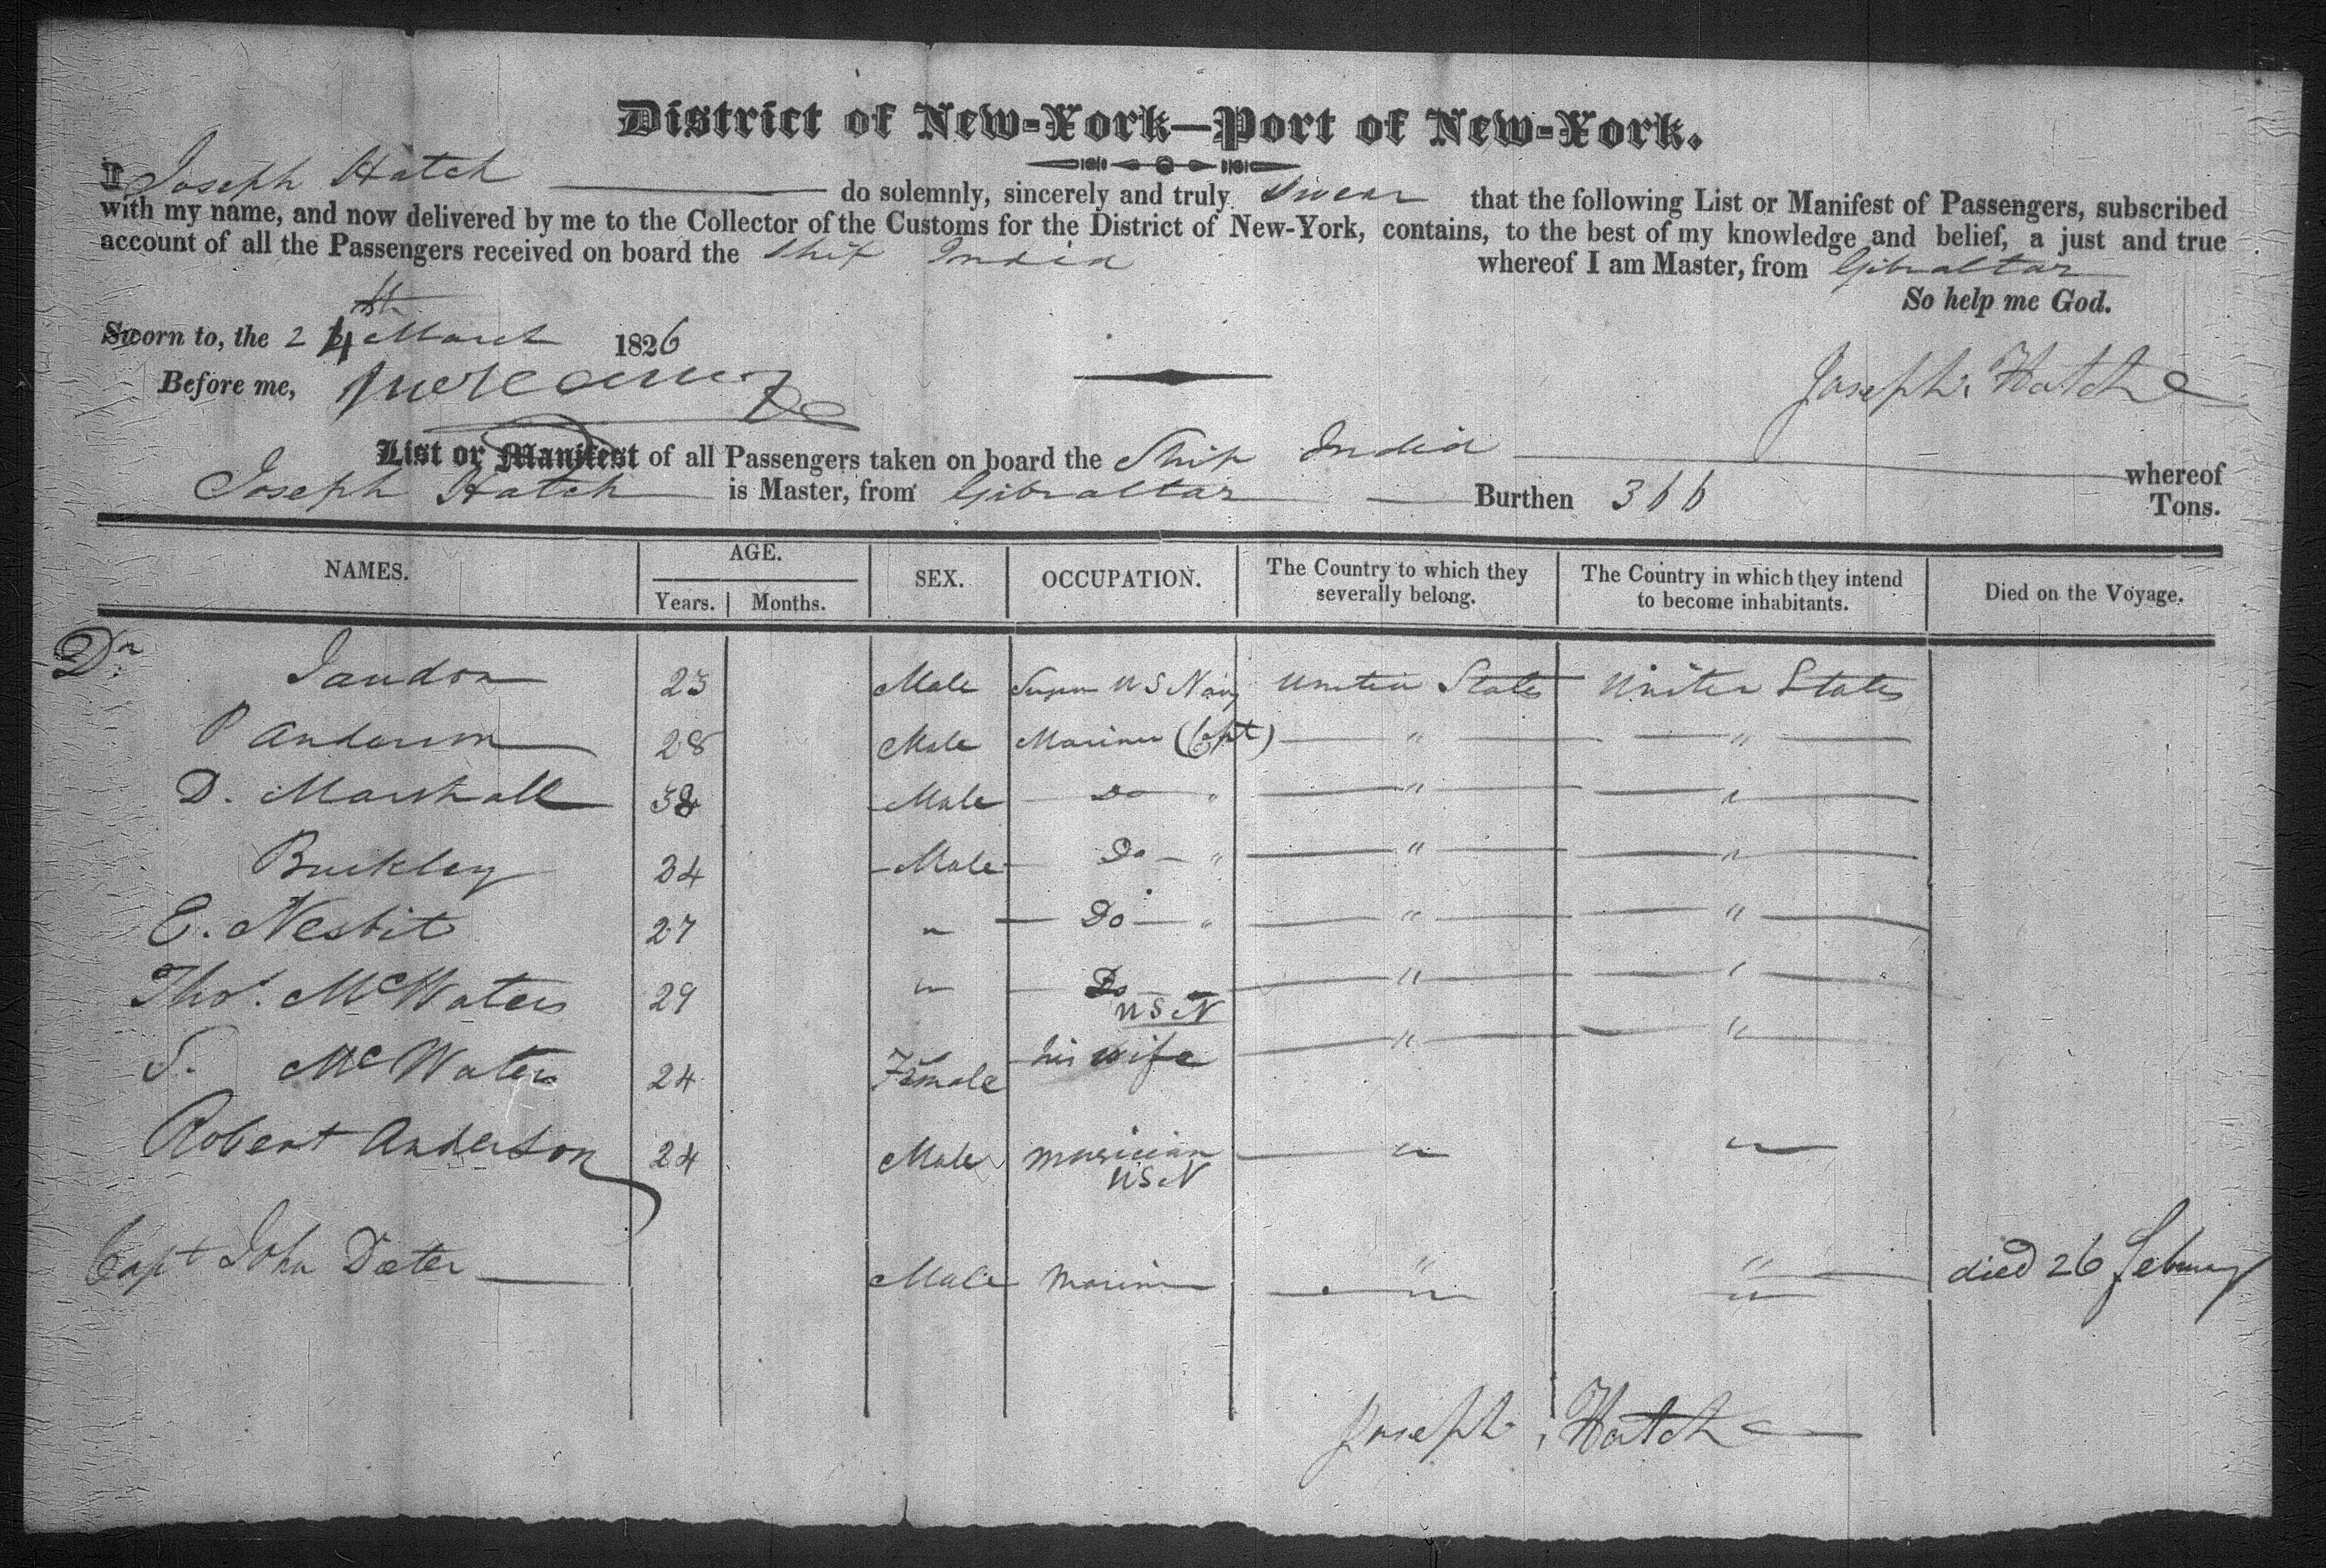 District of New-York—Port of New-York.
I Joseph Hatch do solemnly, sincerely and truly swear that the following List or Manifest of Passengers, subscribed
with my name, and now delivered by me to the Collector of the Customs for the District of New-York, contains, to the best of my knowledge and belief, a just and true
account of all the Passengers received on board the Ship India whereof I am Master, from Gibraltar
So help me God.
Sworn to, the 24th March 1826
Before me,
Joseph Hatch
List or Manifest of all Passengers taken on board the Ship India whereof
Joseph Hatch is Master, from Gibraltar Burthen 366 Tons.
NAMES. AGE. Years. Months. SEX. OCCUPATION. The Country to which they severally belong. The Country in which they intend to become inhabitants. Died on the Voyage.
Dr Jaudon 23 Male U S Navy United States United States
P Anderson 28 Male Mariner (Capt) " "
D. Marshall Male Do " " "
Buckley 34 Male Do " " "
E. Nesbit 27 " Do " " "
Thos. McWaters 29 " Do U S N " "
S. McWaters 24 Female his wife " "
Robert Anderson 24 Male musician U S N " "
Capt John Dater Male Marine " " died 26 February
" "
Joseph Hatch